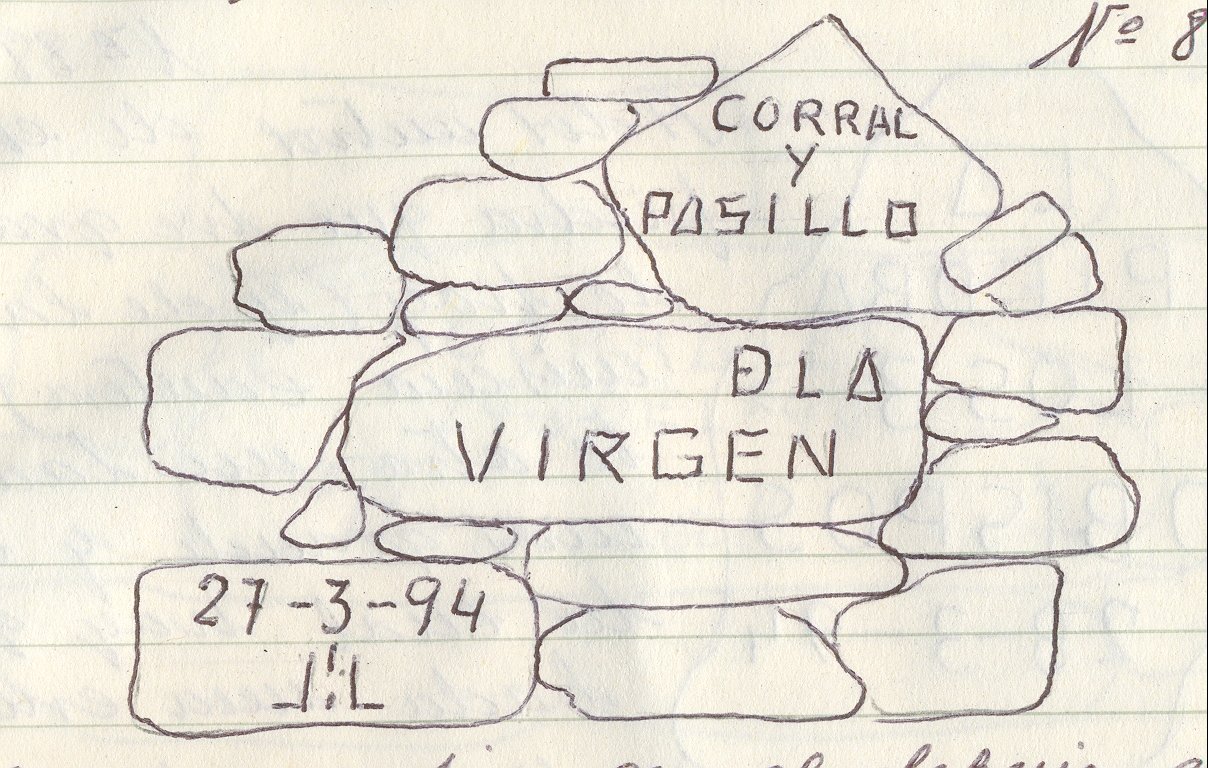 Nº 8
CORRAL
Y
PASILLO
D LA
VIRGEN
27-3-94